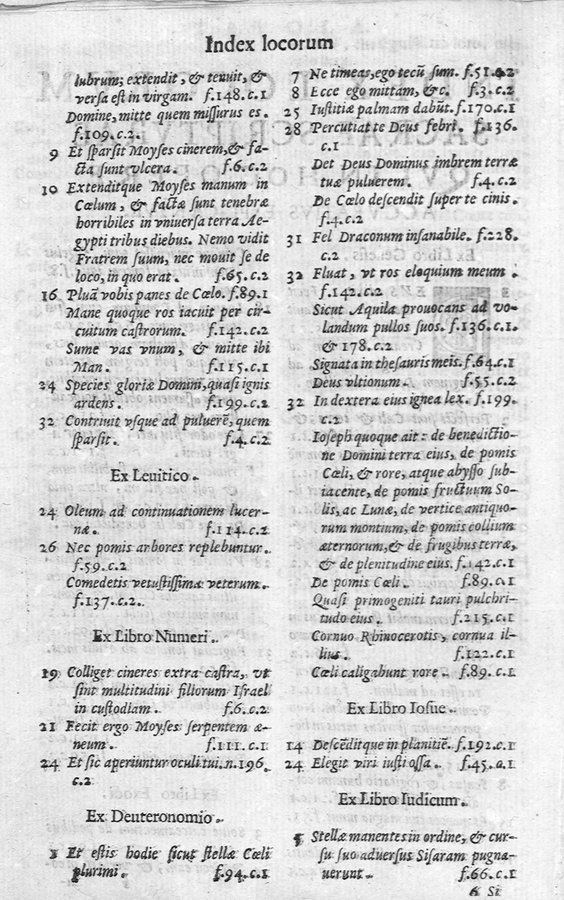 Index locorum
lubrum; extendit, & tenuit, &
versa est in virgam. f.148.c.1
Domine, mitte quem missurus es.
f.109.c.2.
9 Et sparsit Moyses cinerem, & fa-
cta sunt vlcera. f.6.c.2
10 Extenditque Moyses manum in
Cœlum, & factæ sunt tenebræ
horribiles in vniversa terra Ae-
gypti tribus diebus. Nemo vidit
Fratrem suum, nec movit se de
loco, in quo erat. f.65.c.2
16 Pluã vobis panes de Cœlo. f.89.1
Mane quoque ros iacuit per cir-
cuitum castrorum. f.142.c.2
Sume vas vnum, & mitte ibi
Man. f.115.c.1
24 Species gloriæ Domini, quasi ignis
ardens. f.199.c.2
32 Contrivit vsque ad pulverẽ, quem
sparsit. f.4.c.2
Ex Levitico.
24 Oleum ad continuationem lucer-
næ. f.114.c.2
26 Nec pomis arbores replebuntur.
f.59.c.2
Comedetis vetustissima veterum.
f.137.c.2.
Ex Libro Numeri.
19 Colliget cineres extra castra, vt
sint multitudini filiorum Israel
in custodiam. f.6.c.2
21 Fecit ergo Moyses serpentem æ-
neum. f.111.c.1
24 Et sic aperiuntur oculi tui. n.196.
c.2
Ex Deuteronomio.
1 Et estis hodie sicut stellæ Cœli
plurimi. f.94.c.1
7 Ne timeas, ego tecũ sum. f.51.c.2
8 Ecce ego mittam, &c. f.3.c.2
25 Iustitiæ palmam dabũt. f.170.c.1
28 Percutiat te Deus febri. f.136.
c.1
Det Deus Dominus imbrem terræ
tuæ pulverem. f.4.c.2
De Cœlo descendit super te cinis.
f.4.c.2
31 Fel Draconum insanabile. f.228.
c.2
32 Fluat, vt ros eloquium meum.
f.142.c.2
Sicut Aquila provocans ad vo-
landum pullos suos. f.136.c.1.
& 178.c.2
Signata in thesauris meis. f.64.c.1
Deus vltionum. f.55.c.2
32 In dextera eius ignea lex. f.199.
c.2
Ioseph quoque ait: de benedictio-
ne Domini terra eius, de pomis
Cœli, & rore, atque abysso sub-
iacente, de pomis fructuum So-
lis, ac Lunæ, de vertice antiquo-
rum montium, de pomis collium
æternorum, & de frugibus terræ,
& de plenitudine eius. f.142.c.1
De pomis Cœli. f.89.c.1
Quasi primogeniti tauri pulchri-
tudo eius. f.215.c.1
Cornuo Rhinocerotis, cornua il-
lius. f.122.c.1
Cœli caligabunt rore. f.89.c.1
Ex Libro Iosue.
14 Descẽditque in planitiẽ. f.192.c.1
24 Elegit viri iusti ossa. f.45.c.1
Ex Libro Iudicum.
5 Stellæ manentes in ordine, & cur-
su suo adversus Sisaram pugna-
verunt. f.66.c.1
6 Si